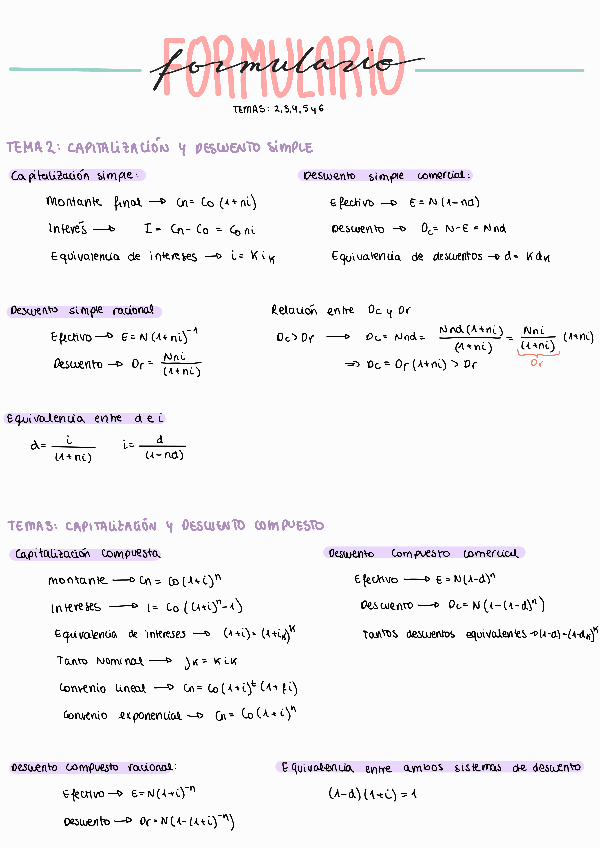 FORMULARIO
formulario
TEMAS: 2,3,4,5 y 6
TEMA 2: CAPITALIZACIÓN Y DESCUENTO SIMPLE
Capitalización simple:
Montante final → Cn = Co (1+ni)
Interés → I = Cn - Co = Co ni
Equivalencia de intereses → i = K iK
Descuento simple comercial:
Efectivo → E = N(1-nd)
Descuento → Dc = N-E = Nnd
Equivalencia de descuentos → d = K dK
Descuento simple racional
Efectivo → E = N(1+ni)⁻¹
Descuento → Dr = Nni / (1+ni)
Relación entre Dc y Dr
Dc > Dr → Dc = Nnd = Nnd(1+ni) / (1+ni) = Nni / (1+ni) (1+ni)
Dr
⇒ Dc = Dr (1+ni) > Dr
Equivalencia entre d e i
d = i / (1+ni) i = d / (1-nd)
TEMA3: CAPITALIZACIÓN Y DESCUENTO COMPUESTO
Capitalización compuesta
Montante → Cn = Co (1+i)ⁿ
Intereses → I = Co ((1+i)ⁿ-1)
Equivalencia de intereses → (1+i) = (1+iK)ᴷ
Tanto Nominal → jK = K iK
Convenio lineal → Cn = Co (1+i)ᵗ (1+fi)
Convenio exponencial → Cn = Co (1+i)ⁿ
Descuento compuesto comercial
Efectivo → E = N(1-d)ⁿ
Descuento → Dc = N(1-(1-d)ⁿ)
Tantos descuentos equivalentes → (1-d) = (1-dK)ᴷ
Descuento compuesto racional:
Efectivo → E = N(1+i)⁻ⁿ
Descuento → Dr = N(1-(1+i)⁻ⁿ)
Equivalencia entre ambos sistemas de descuento
(1-d)(1+i) = 1